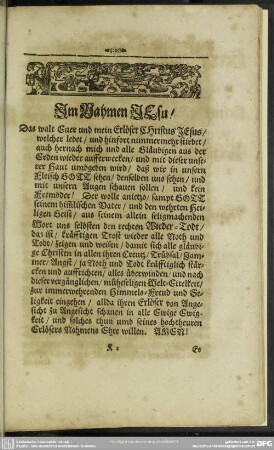 Im Nahmen JEsu/
Das walt Euer und mein Erlöser CHristus JEsus/
welcher lebet/ und hinfort nimmermehr stirbet/
auch hernach mich und alle Gläubigen aus der
Erden wieder aufferwecken/ und mit dieser unse-
rer Haut umbgeben wird/ daß wir in unserm
Fleisch GOTT sehen/ denselben uns sehen/ und
mit unsern Augen schauen sollen/ und kein
Frembder/ Der wolle anietzo/ sampt GOTT
seinem himmlischen Vater/ und den wehrten Hei-
ligen Geist/ aus seinem allein seligmachenden
Wort uns selbsten den rechten Wieder-Todt/
das ist/ kräfftigen Trost wieder alle Noth und
Todt/ zeigen und weisen/ damit sich alle gläubi-
ge Christen in allen ihren Creutz/ Trübsal/ Jam-
mer/ Angst/ ja Noth und Todt kräfftiglich stär-
cken und auffrichten/ alles überwinden/ und nach
dieser vergänglichen/ mühseligen Welt-Eitelkeit/
zur immerwehrenden Himmels-Freud und Se-
ligkeit eingehen/ allda ihren Erlöser von Ange-
sicht zu Angesicht schauen in alle Ewige Ewig-
keit/ und solches thun umb seines hochtheuren
Erlösers Nahmens Ehre willen. AMEN!
Es